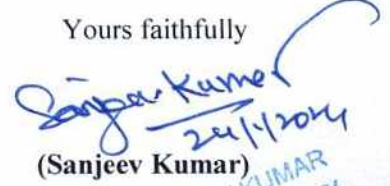 Yours faithfully
Sanjeev Kumar
24/1/2024
(Sanjeev Kumar)
KUMAR